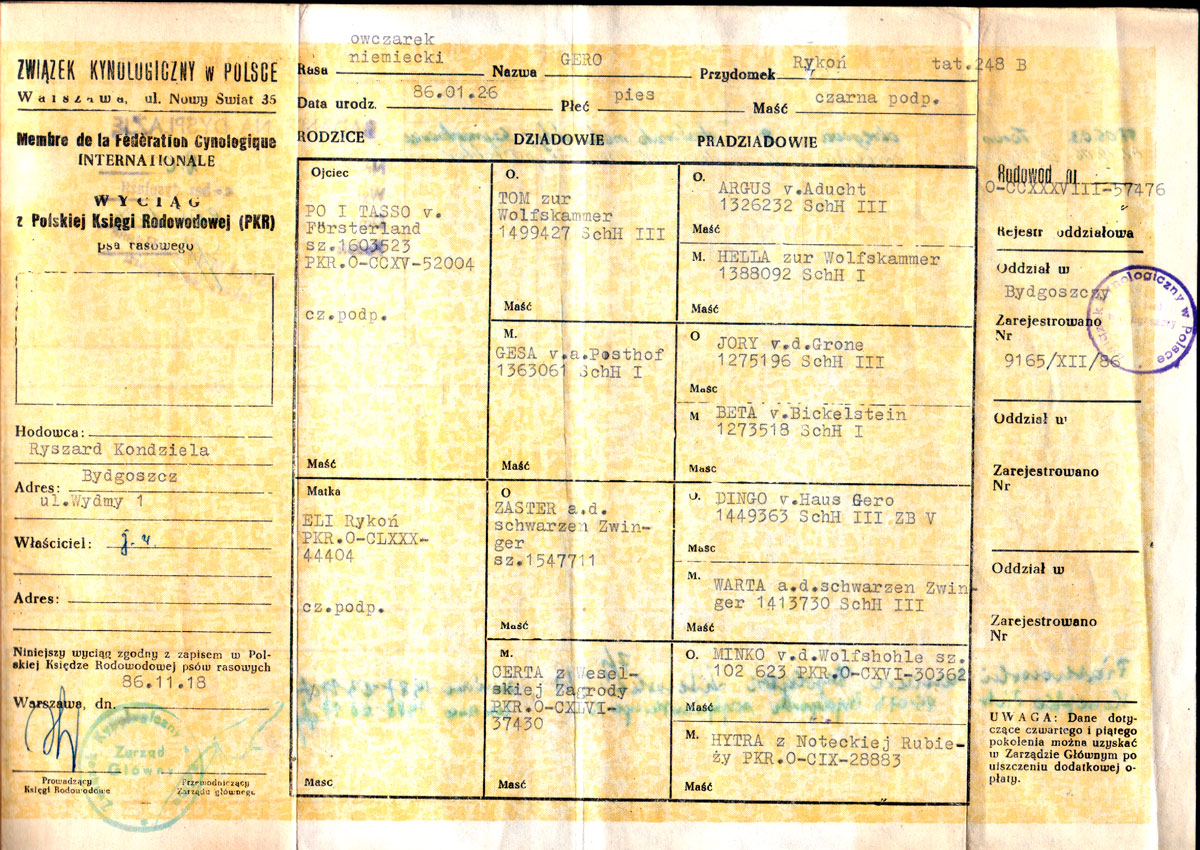 ZWIĄZEK KYNOLOGICZNY w POLSCE
Warszawa, ul. Nowy Świat 35
Membre de la Fédération Cynologique
INTERNATIONALE
WYCIĄG
z Polskiej Księgi Rodowodowej (PKR)
psa rasowego
Hodowca:
Ryszard Kondziela
Bydgoszcz
Adres:
ul.Wydmy 1
Właściciel: j.w.
Adres:
Niniejszy wyciąg zgodny z zapisem w Pol-
skiej Księdze Rodowodowej psów rasowych
86.11.18
Warszawa, dn.
Zarząd
Główny
Prowadzący
Księgi Rodowodowe
Przewodniczący
Zarządu głównego
owczarek
Rasa niemiecki Nazwa GERO Przydomek Rykoń tat.248 B
Data urodz. 86.01.26 Płeć pies Maść czarna podp.
RODZICE DZIADOWIE PRADZIADOWIE
Ojciec
PO I TASSO v.
Försterland
sz.1603523
PKR.O-CCXV-52004
cz.podp.
Maść
Matka
ELI Rykoń
PKR.O-CLXXX-
44404
cz.podp.
Masc
O.
TOM zur
Wolfskammer
1499427 SchH III
Maść
M.
GESA v.a.Posthof
1363061 SchH I
Maść
O
ZASTER a.d.
schwarzen Zwin-
ger
sz.1547711
Maść
M.
CERTA z Wesel-
skiej Zagrody
PKR.O-CXLVI-
37430
Maść
O.
ARGUS v.Aducht
1326232 SchH III
Maść
M. HELLA zur Wolfskammer
1388092 SchH I
Maść
O JORY v.d.Grone
1275196 SchH III
Maść
M BETA v.Bickelstein
1273518 SchH I
Masc
O. DINGO v.Haus Gero
1449363 SchH III ZB V
Masc
M. WARTA a.d.schwarzen Zwin-
ger 1413730 SchH III
Maść
O. MINKO v.d.Wolfshohle sz.
102 623 PKR.O-CXVI-30362
Maść
M. HYTRA z Noteckiej Rubie-
ży PKR.O-CIX-28883
Maść
Rodowod nr
O-CCXXXVIII-57476
Rejestr oddziałowa
Oddział w
Bydgoszczy
Zarejestrowano
Nr
9165/XII/86
Oddział w
Zarejestrowano
Nr
Oddział w
Zarejestrowano
Nr
UWAGA: Dane doty-
czące czwartego i piątego
pokolenia można uzyskać
w Zarządzie Głównym po
uiszczeniu dodatkowej o-
płaty.